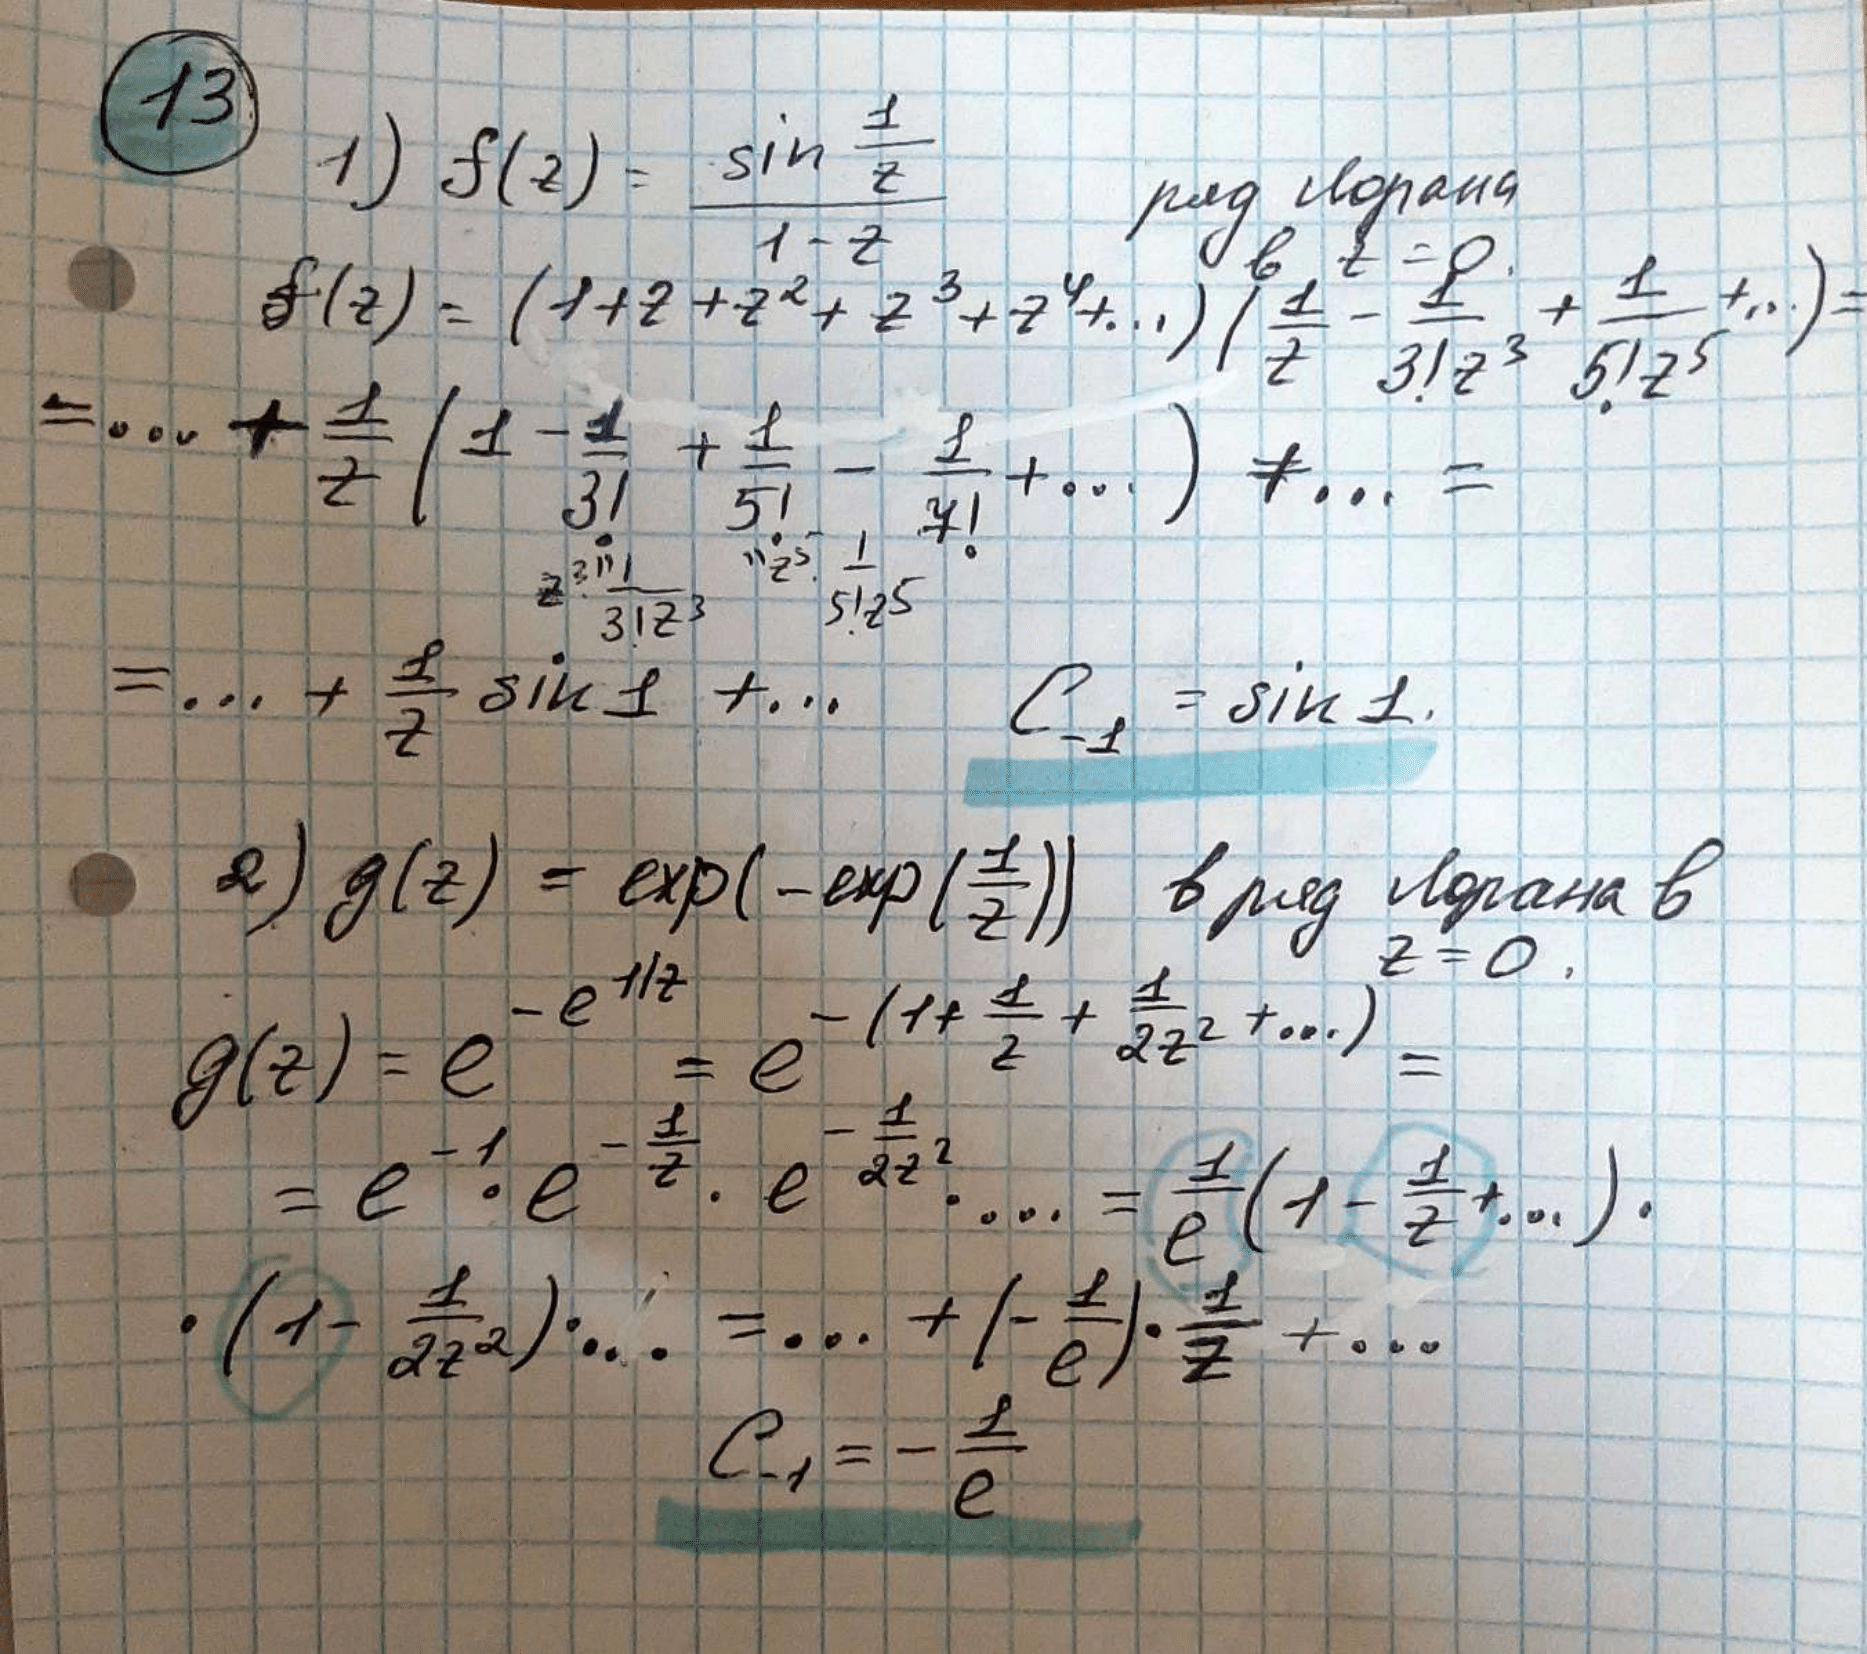 13
1) f(z) = sin 1/z / (1-z) ряд Лорана
в z = 0.
f(z) = (1+z+z²+z³+z⁴+...)(1/z - 1/(3!z³) + 1/(5!z⁵) +...) =
=... + 1/z (1 - 1/3! + 1/5! - 1/7! +...) +... =
" z²·1/(3!z³) " z⁵·1/(5!z⁵)
=... + 1/z sin 1 +... C₋₁ = sin 1.
2) g(z) = exp(-exp(1/z)) в ряд Лорана в
z = 0.
g(z) = e^(-e^(1/z)) = e^(-(1+1/z+1/(2z²)+...)) =
= e^(-1) · e^(-1/z) · e^(-1/(2z²)) · ... = 1/e (1 - 1/z +...) ·
· (1 - 1/(2z²)) · ... =... + (-1/e) · 1/z +...
C₋₁ = - 1/e